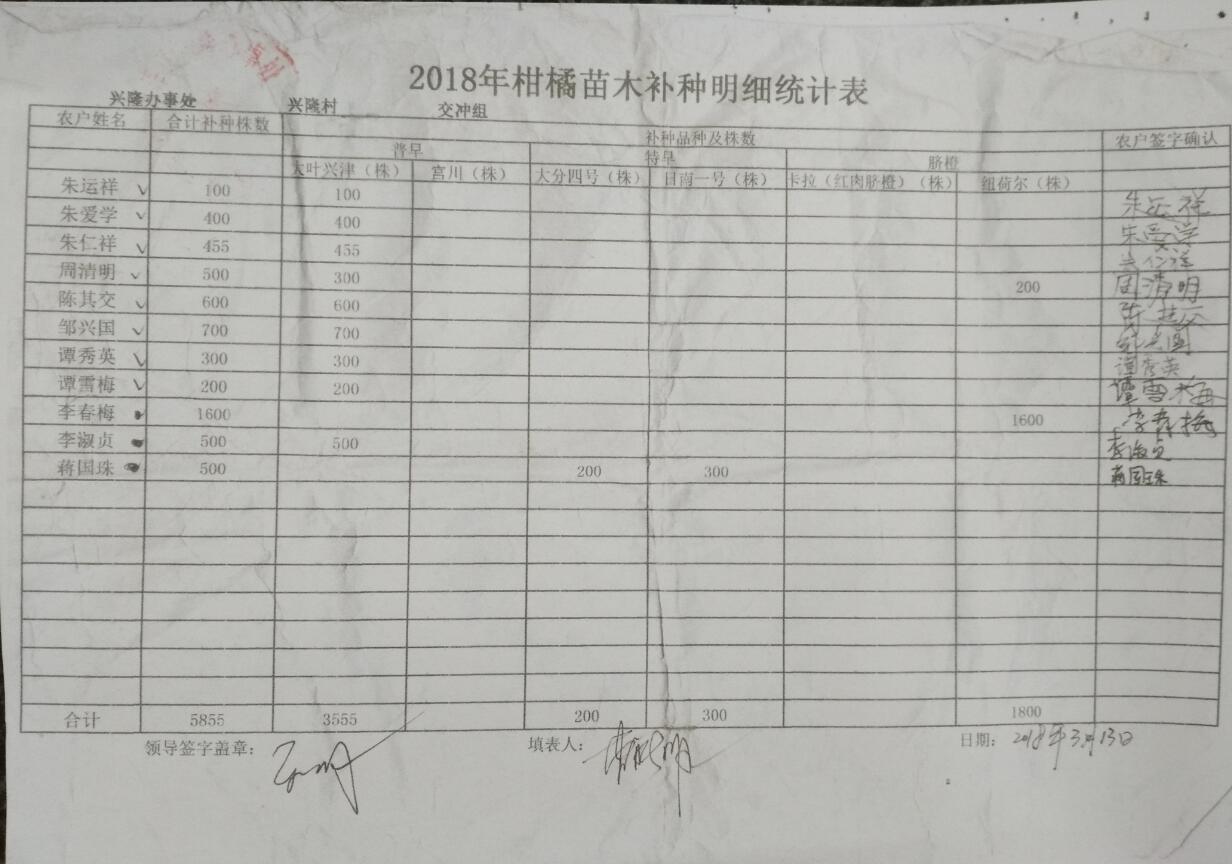 2018年柑橘苗木补种明细统计表
兴隆办事处 兴隆村 交冲组
农户姓名 合计补种株数 补种品种及株数 农户签字确认
普早 特早 脐橙
大叶兴津（株） 宫川（株） 大分四号（株） 日南一号（株） 卡拉（红肉脐橙）（株） 纽荷尔（株）
朱运祥 100 100 朱运祥
朱爱学 400 400 朱爱学
朱仁祥 455 455 朱仁祥
周清明 500 300 200 周清明
陈其交 600 600
邹兴国 700 700
谭秀英 300 300 谭秀英
谭雪梅 200 200 谭雪梅
李春梅 1600 1600 李春梅
李淑贞 500 500 李淑贞
蒋国珠 500 200 300 蒋国珠
合计 5855 3555 200 300 1800
领导签字盖章： 填表人： 日期：2018年3月13日